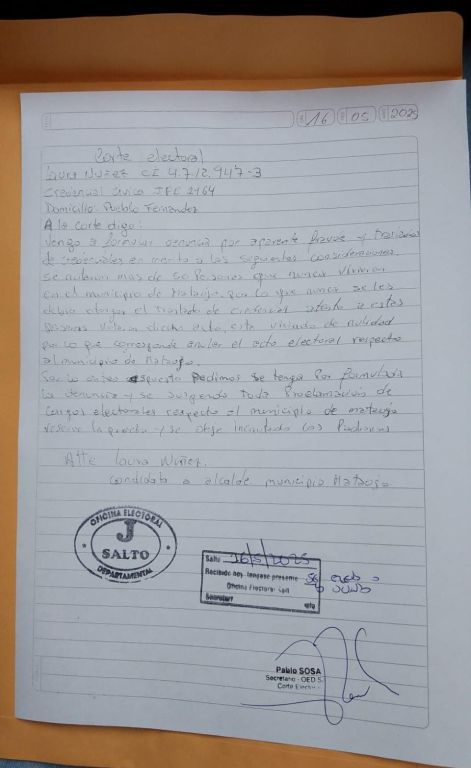 16 05 2025
Corte electoral
Laura Nuñez CI 4.712.947-3
Credencial Civica JFE 2164
Domicilio: Pueblo Fernandez
A la corte digo:
Vengo a formular denuncia por aparente fraude y traslados
de credenciales en merito a las siguientes consideraciones
mas de 50 Personas que nunca vivieron
en el municipio de Mataojo, por lo que nunca se les
debio otorgar el traslado de credencial a estas
Personas dicho acto, esta viciado de nulidad
por lo que corresponde anular el acto electoral respecto
al municipio de Mataojo.
Por lo antes expuesto Pedimos se tenga Por formulada
la denuncia y se suspenda toda Proclamacion de
Cargos electorales respecto al municipio de mataojo
y se deje incautado los Padrones
Atte Laura Nuñez.
Candidata a alcalde municipio Mataojo
OFICINA ELECTORAL
J
SALTO
DEPARTAMENTAL
Salto 16/5/2025
Recibido hoy, tengase presente
Oficina Electoral
Secretary
Pablo SOSA
Secretario - OED S
Corte Elector